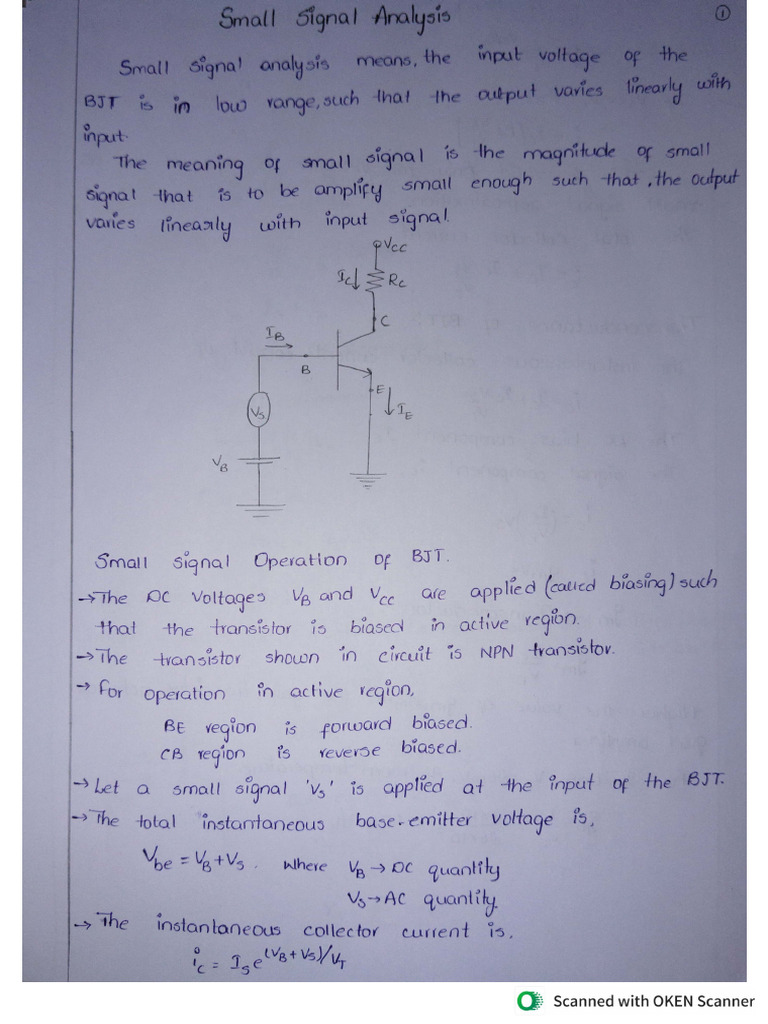 Small Signal Analysis
1
Small signal analysis means, the input voltage of the
BJT is in low range, such that the output varies linearly with
input.
The meaning of small signal is the magnitude of small
signal that is to be amplify small enough such that, the output
varies linearly with input signal.
VCC
IC
RC
C
IB
B
E
IE
VS
VB
Small Signal Operation of BJT.
→ The DC Voltages VB and VCC are applied (called biasing) such
that the transistor is biased in active region.
→ The transistor shown in circuit is NPN transistor.
→ For operation in active region,
BE region is forward biased.
CB region is reverse biased.
→ Let a small signal 'Vs' is applied at the input of the BJT.
→ The total instantaneous base-emitter voltage is,
Vbe = VB + VS. Where VB → DC quantity
VS → AC quantity
→ The instantaneous collector current is,
ic = Is e^(VB + VS)/VT
Scanned with OKEN Scanner